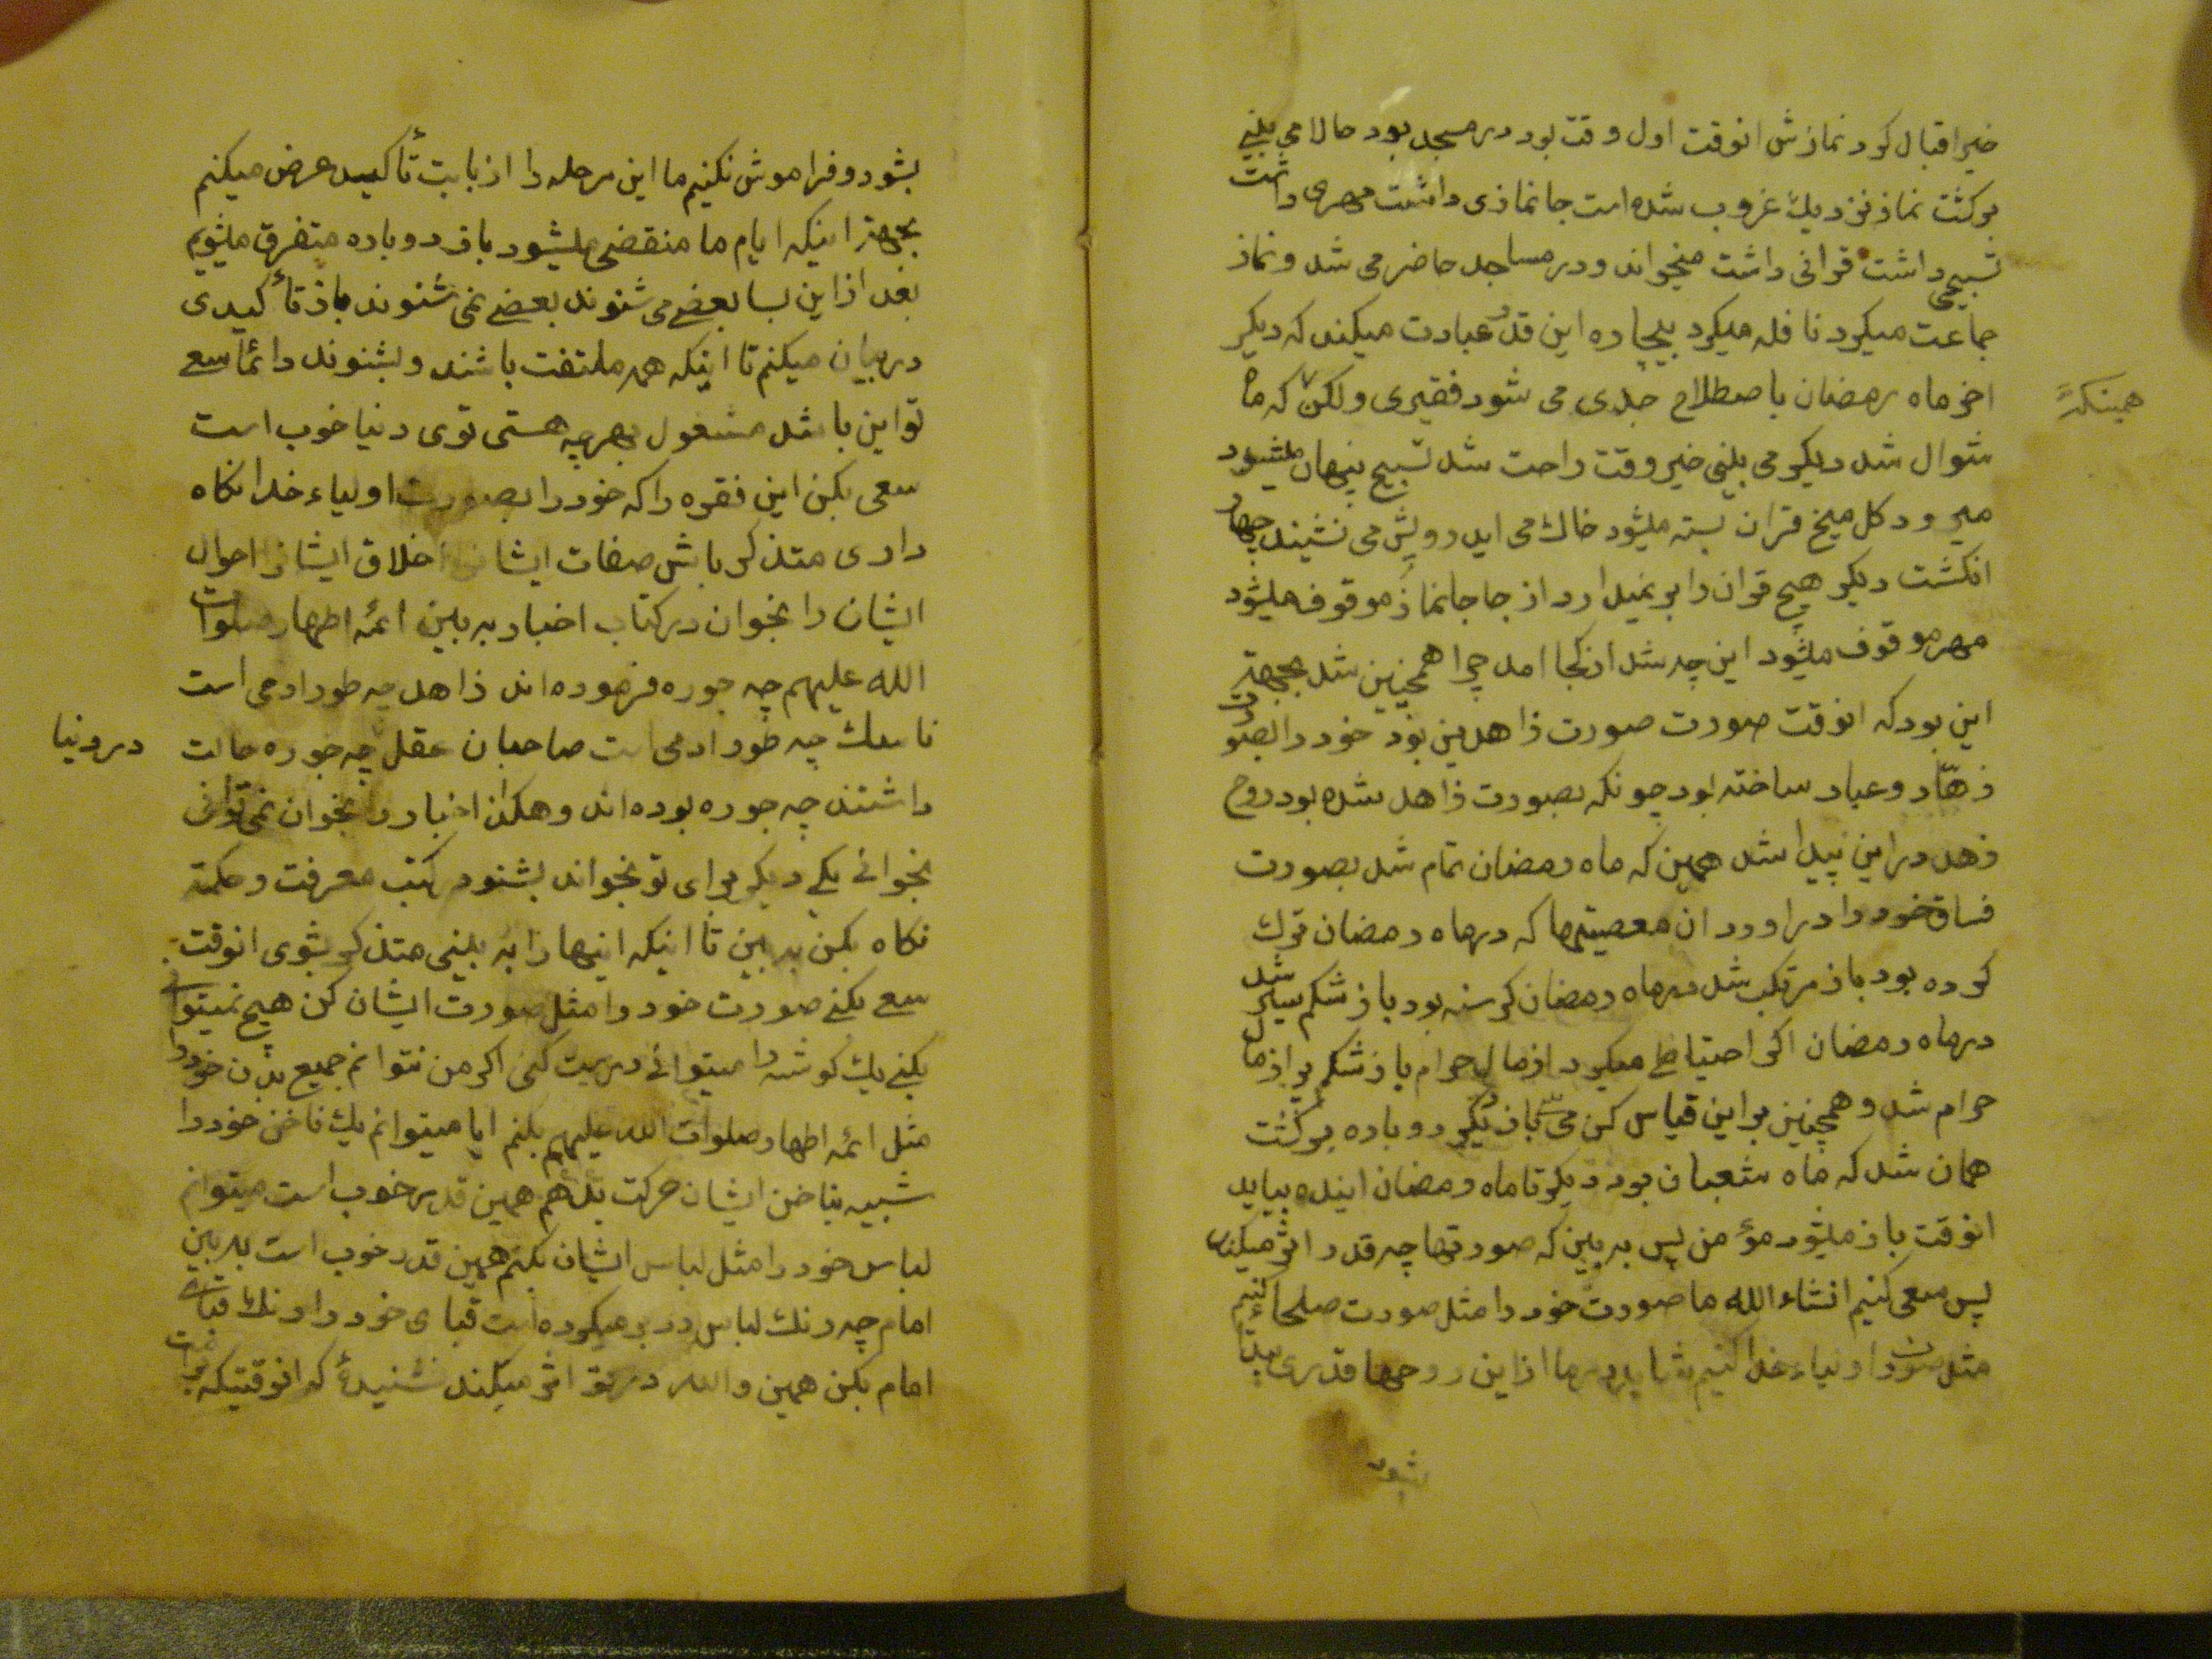 خیر اقبال کرد نمازش انوقت اول وقت بود در مسجد بود حالا می بینی
برکشت نماز نزدیك غروب شده است جانمازی داشت مهری داشت
تسبیحی داشت قرانی داشت میخواند و در مساجد حاضر می شد و نماز
جماعت میکرد نافله میکرد بیچاره این قدر عبادت میکند که دیکر
اخر ماه رمضان باصطلاح جلدی می شود فقیری ولکن همینکه ماه
شوال شد دیکر می بینی خیر وقت راحت شد تسبیح پنهان میشود
میرود کل میخ قران بسته میشود خاك می اید رویش می نشیند چهار
انکشت دیکر هیچ قران را بر نمیدارد از جا جانماز موقوف میشود
مهر موقوف میشود این چه شد از کجا امد چرا همچنین شد بجهت
این بود که انوقت صورت صورت زاهدین بود خود را بصورت
زهّاد و عباد ساخته بود چونکه بصورت زاهد شده بود روح
زهد در این پیدا شد همین که ماه رمضان تمام شد بصورت
فساق خود را دراورد ان معصیتها که در ماه رمضان ترك
کرده بود باز مرتکب شد در ماه رمضان کرسنه بود باز شکم سیر شد
در ماه رمضان اکر احتیاطی میکرد از مال حرام باز شکم پر از مال
حرام شد و همچنین بر این قیاس کن می باز دیکر دوباره برکشت
همان شد که ماه شعبان بود دیکر تا ماه رمضان اینده بیاید
انوقت باز میشود مؤمن پس به بین که صورتها چه قدر اثر میکند
پس سعی کنیم انشاء الله ما صورت خود را مثل صورت صلحا کنیم
مثل صورت اولیاء خدا کنیم شاید در ما از این روحها قدری پیدا
شود
بشود و فراموش نکنیم ما این مرحله را از بابت تأکید عرض میکنم
بجهة اینکه ایام ما منقضی میشود باز دوباره متفرق میشویم
بعد از این بسا بعضی می شنوند بعضی نمی شنوند باز تأکیدی
در بیان میکنم تا اینکه همه ملتفت باشند و بشنوند دائما سعی
تو این باشد مشغول بهرچه هستی توی دنیا خوب است
سعی بکن این فقره را که خود را بصورت اولیاء خدا نکاه
داری متذکر باش صفات ایشان اخلاق ایشان احوال
ایشان را بخوان در کتاب اخبار به بین ائمه اطهار صلوات
الله علیهم چه جوره فرموده اند زاهد چه طور ادمی است
ناسك چه طور ادمی است صاحبان عقل چه جوره حالت در دنیا
داشتند چه جوره بوده اند و هکذا اخبار را بخوان نمی توانی
بخوانی یکی دیکر برای تو بخواند بشنو در کتب معرفت و حکمة
نکاه بکن به بین تا اینکه اینها را به بینی متذکر بشوی انوقت
سعی بکنی صورت خود را مثل صورت ایشان کن هیچ نمیتوانی
بکنی یك کوشه را میتوانی درست کنی اکر من نتوانم جمیع بدن خود را
مثل ائمه اطهار صلوات الله علیهم بکنم ایا میتوانم یك ناخن خود را
شبیه بناخن ایشان حرکت بدهم همین قدر خوب است میتوانم
لباس خود را مثل لباس ایشان بکنم همین قدر خوب است به بین
امام چه رنك لباس در بر میکرده است قبای خود را رنك قبای
امام بکن همین والله در تو اثر میکند نشنیدۀ که انوقتیکه